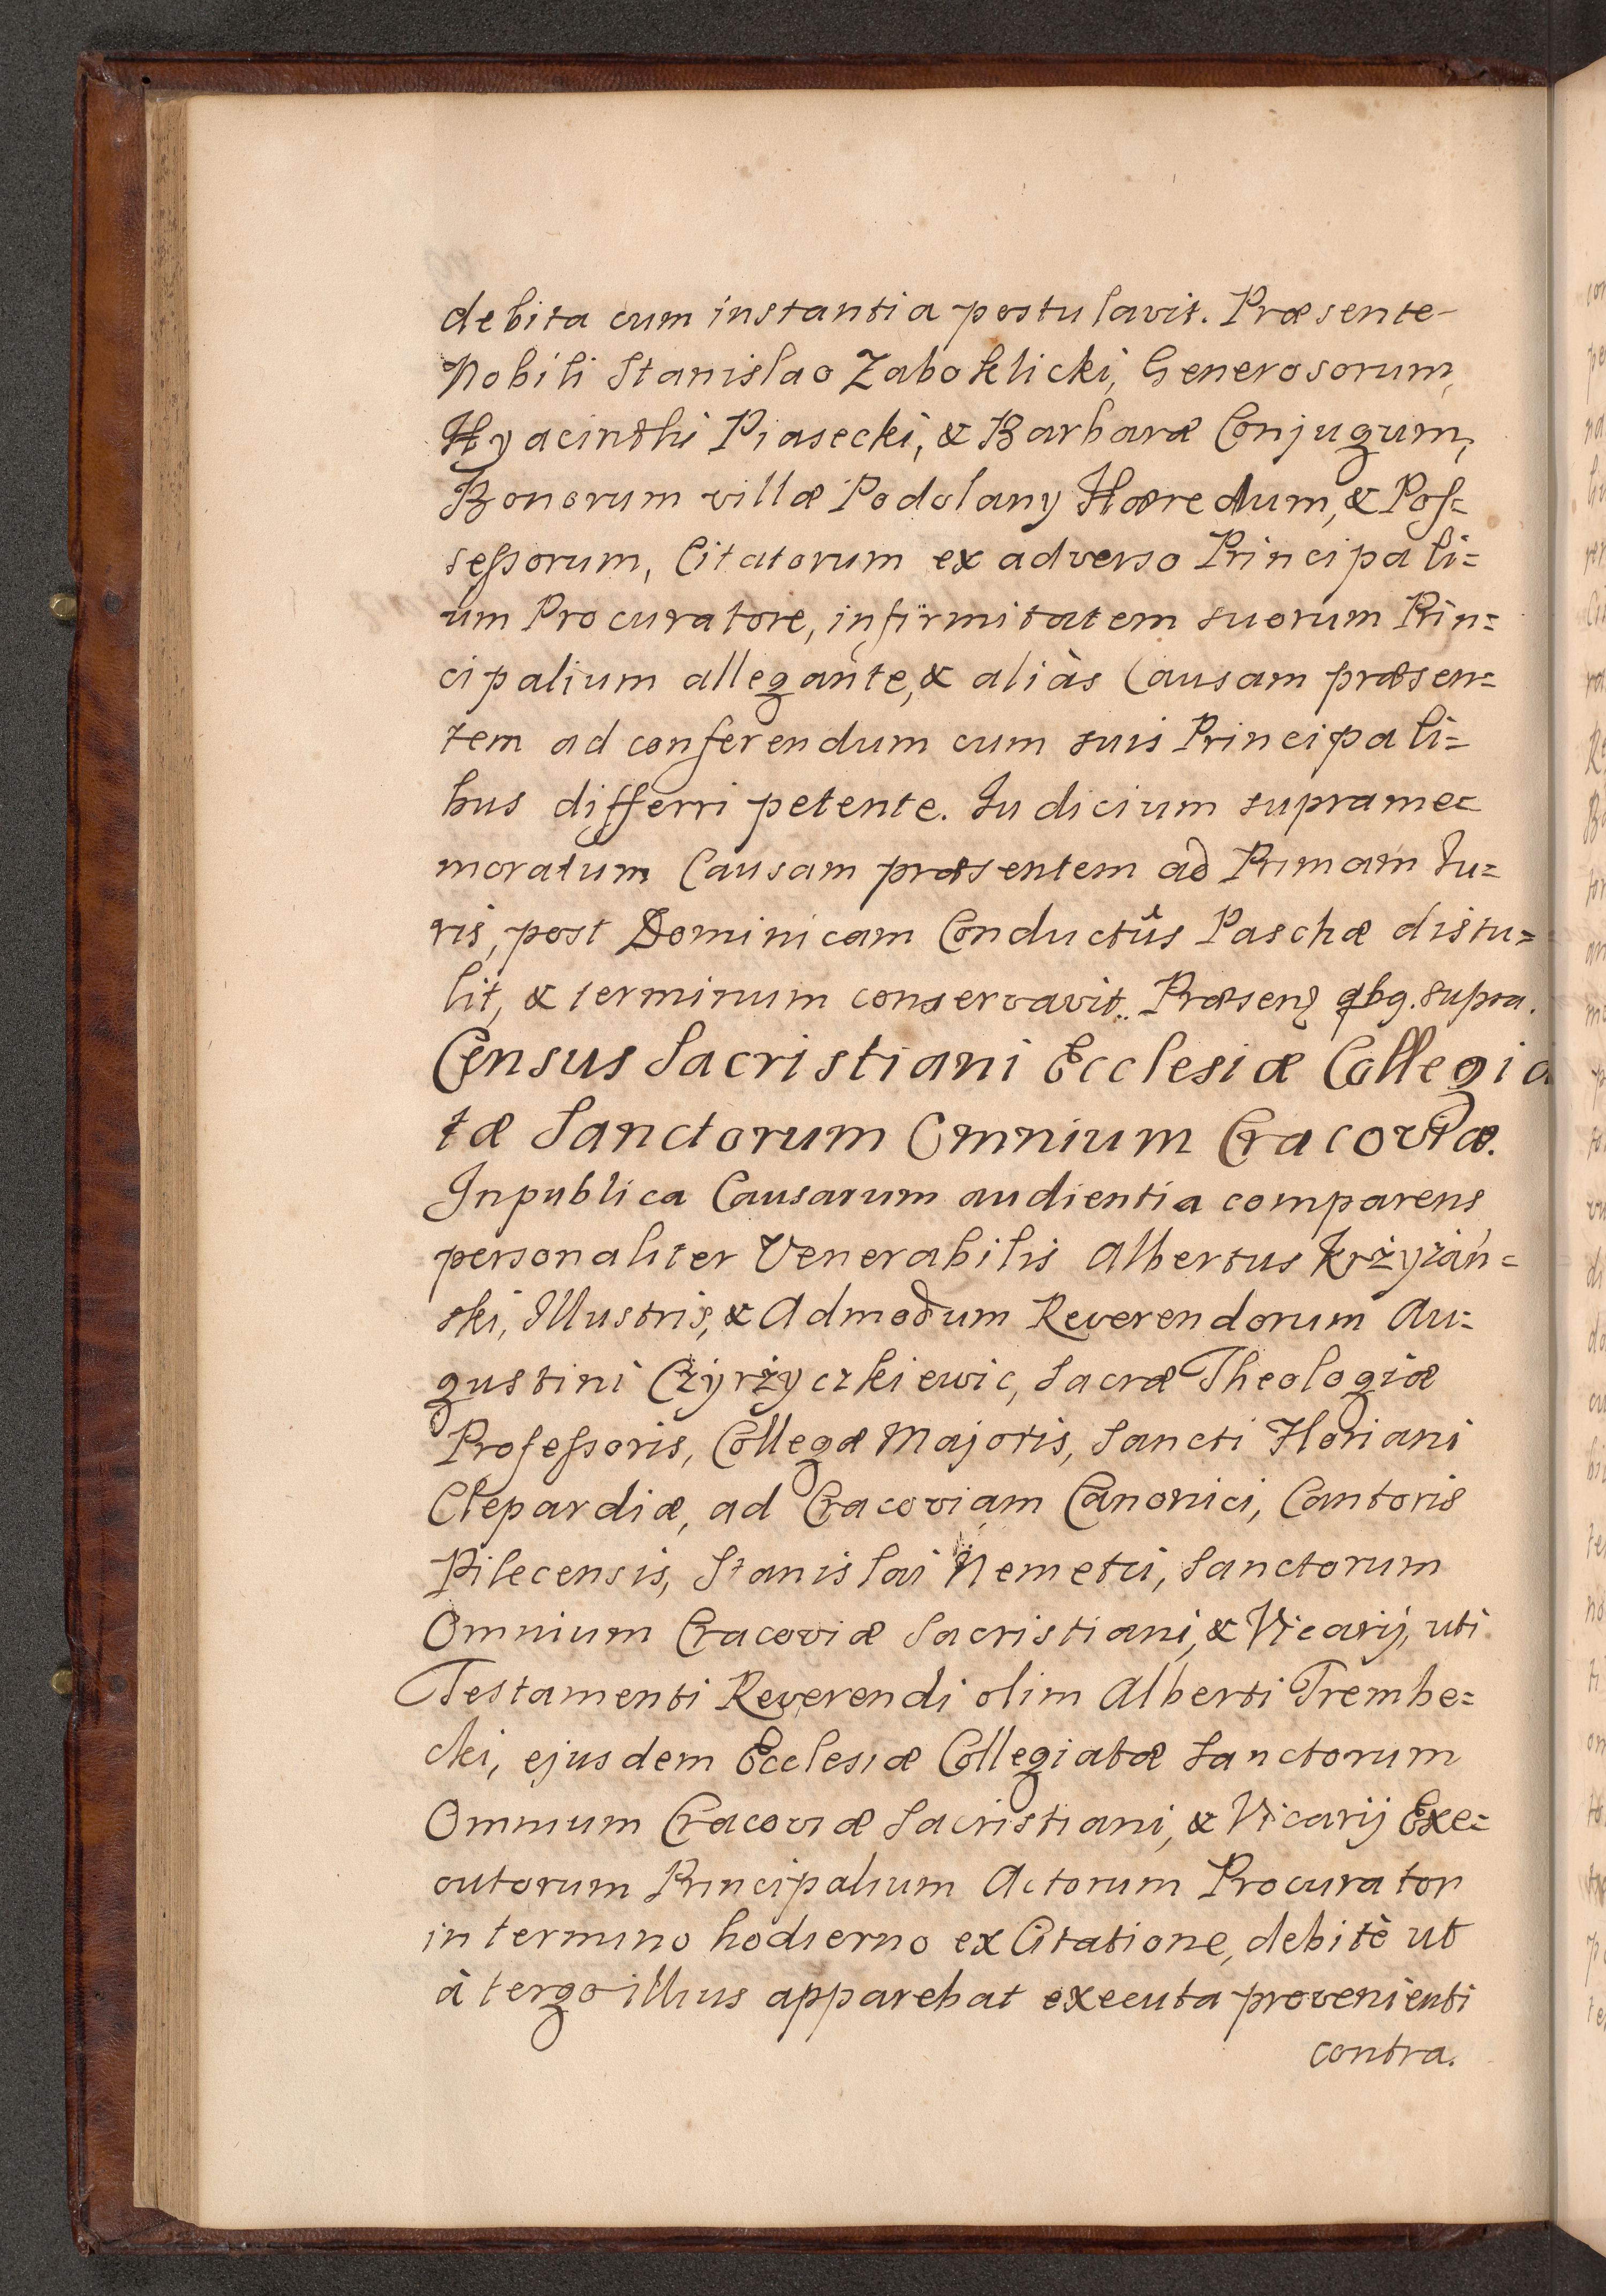 debita cum instantia postulavit. Præsente
Nobili Stanislao Zaboklicki, Generosorum,
Hyacinthi Piasecki, & Barbaræ Conjugum,
Bonorum villæ Podolany Hæredum, & Pos=
sessorum, Citatorum ex adverso Principali=
um Procuratore, infirmitatem suorum Prin=
cipalium allegante, & aliàs Causam præsen=
tem ad conferendum cum suis Principali=
bus differri petente. Judicium suprame=
moratum Causam præsentem ad Primam Ju=
ris, post Dominicam Conductûs Paschæ distu=
lit, & terminum conservavit. Præsen qbg. supra.
Census Sacristiani Ecclesiæ Collegia
tæ Sanctorum Omnium Cracoviæ.
In publica Causarum audientia comparens
personaliter Venerabilis Albertus Krżyżań=
ski, Illustris, & Admodum Reverendorum Au=
gustini Cżyrżyczkiewic, Sacræ Theologiæ
Professoris, Collegæ Majoris, Sancti Floriani
Clepardiæ, ad Cracoviam Canonici, Cantoris
Pilecensis, Stanislai Nemetii, Sanctorum
Omnium Cracoviæ Sacristiani, & Vicarij, uti
Testamenti Reverendi olim Alberti Trembe=
cki, ejusdem Ecclesiæ Collegiatæ Sanctorum
Omnium Cracoviæ Sacristiani, & Vicarij Exe=
cutorum Principalium Actorum Procurator
in termino hodierno ex Citatione, debitè ut
à tergo illius apparebat executa provenienti
contra.